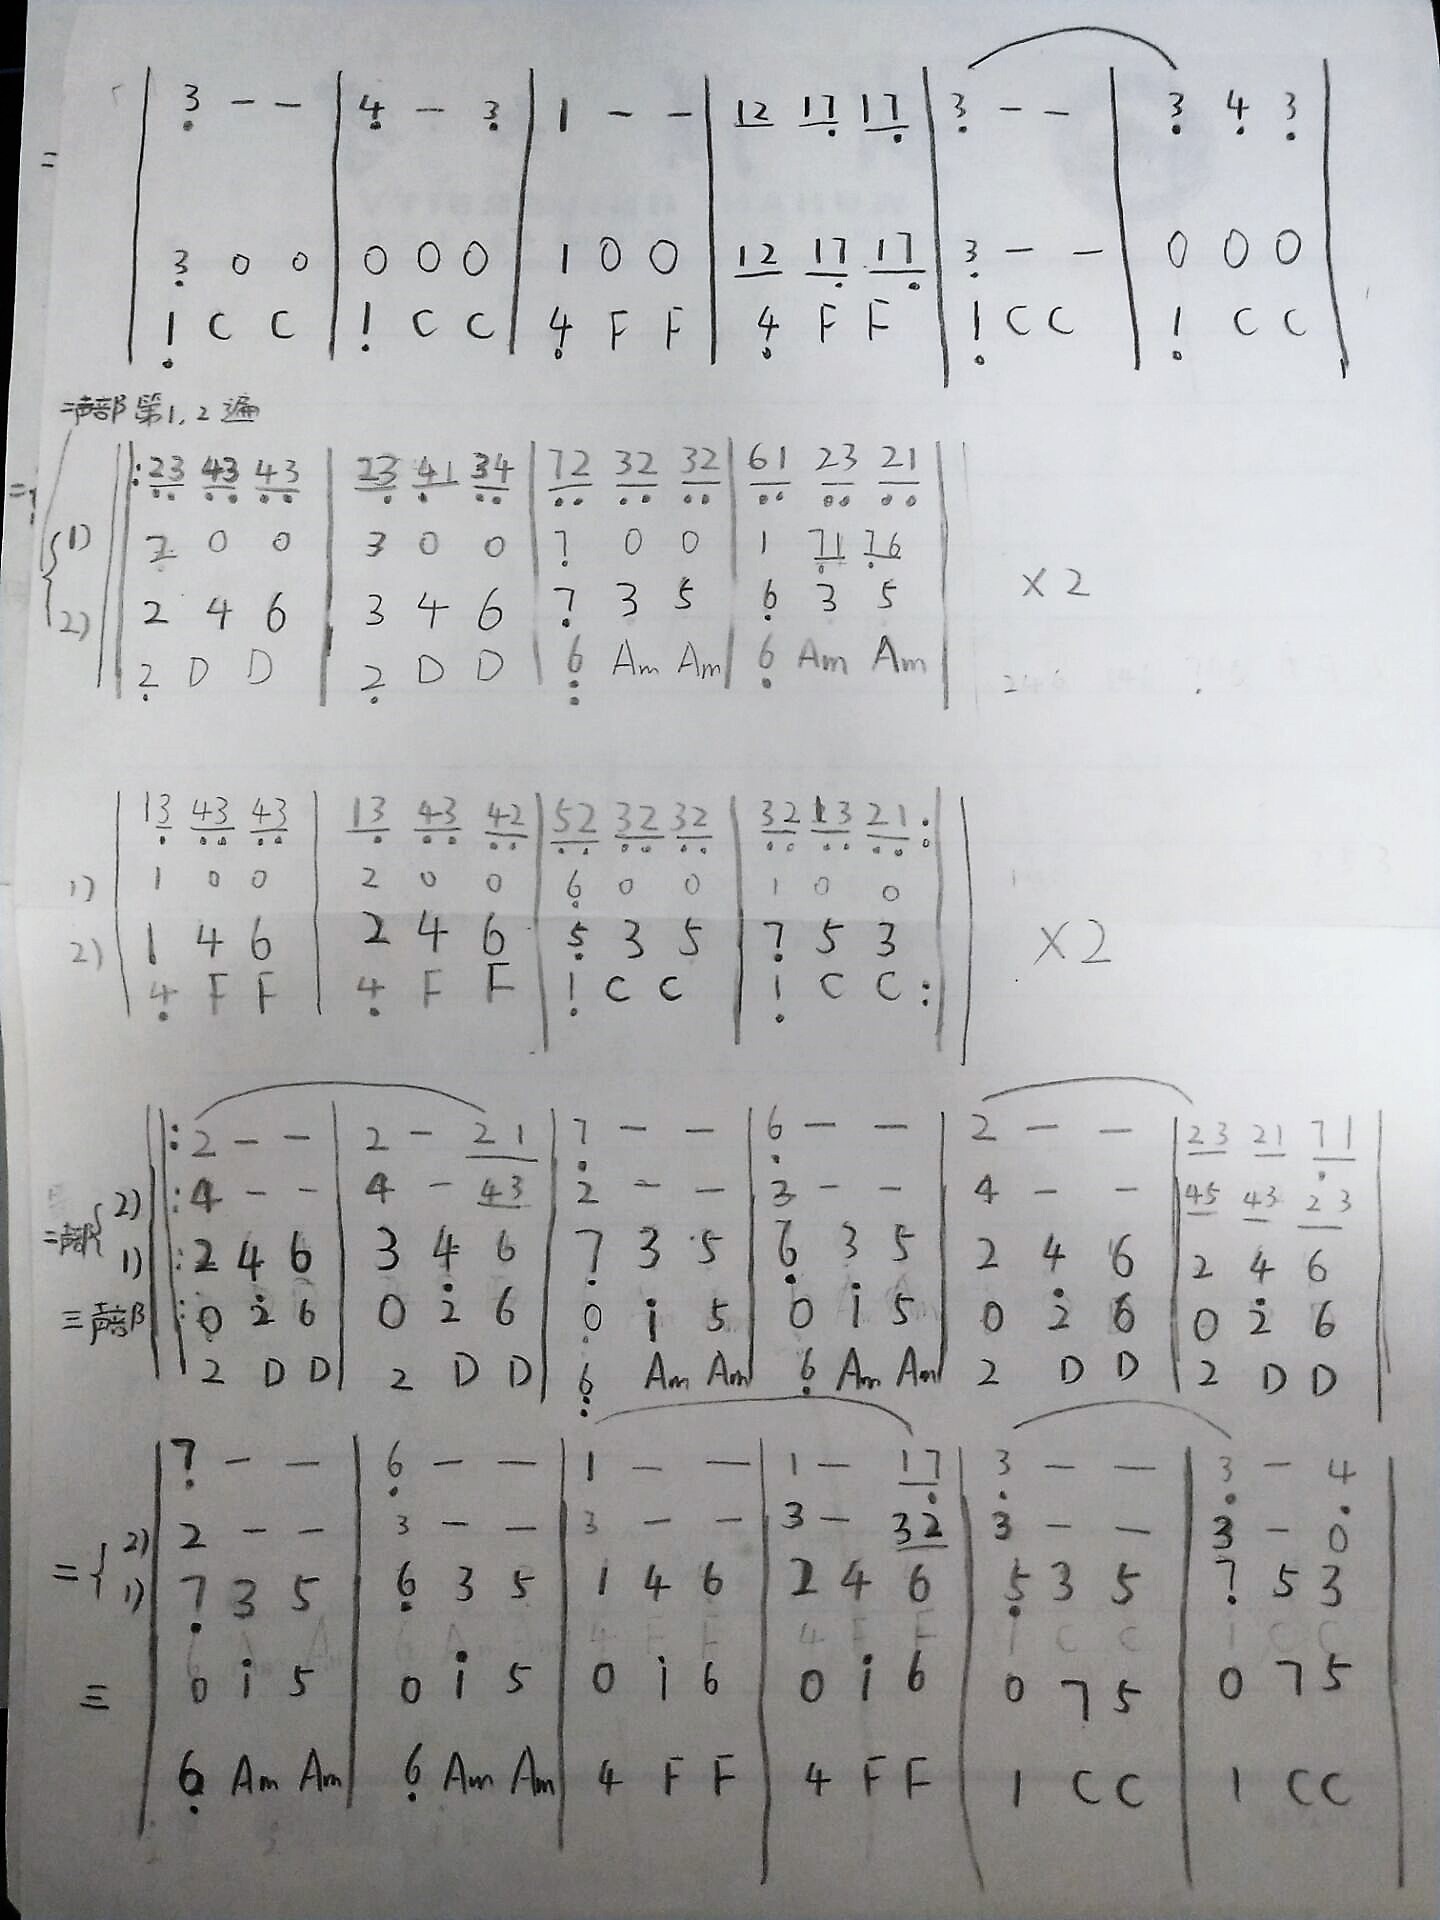 3 - - | 4 - 3 | 1 - - | 12 17 17 | 3 - - | 3 4 3 |
=
3 0 0 | 0 0 0 | 1 0 0 | 12 17 17 | 3 - - | 0 0 0 |
1 C C | 1 C C | 4 F F | 4 F F | 1 C C | 1 C C |
二声部第1,2遍
|: 23 43 43 | 23 41 34 | 72 32 32 | 61 23 21 |
1) 2 0 0 | 3 0 0 | 7 0 0 | 1 71 76 |
×2
2) 2 4 6 | 3 4 6 | 7 3 5 | 6 3 5 |
2 D D | 2 D D | 6 Am Am | 6 Am Am |
13 43 43 | 13 43 42 | 52 32 32 | 32 13 21 :|
1) 1 0 0 | 2 0 0 | 6 0 0 | 1 0 0 |
2) 1 4 6 | 2 4 6 | 5 3 5 | 7 5 3 |
×2
4 F F | 4 F F | 1 C C | 1 C C :|
|: 2 - - | 2 - 21 | 7 - - | 6 - - | 2 - - | 23 21 71 |
2) |: 4 - - | 4 - 43 | 2 - - | 3 - - | 4 - - | 45 43 23 |
二声部
1) |: 2 4 6 | 3 4 6 | 7 3 5 | 6 3 5 | 2 4 6 | 2 4 6 |
三声部 |: 0 2 6 | 0 2 6 | 0 1 5 | 0 1 5 | 0 2 6 | 0 2 6 |
2 D D | 2 D D | 6 Am Am | 6 Am Am | 2 D D | 2 D D |
7 - - | 6 - - | 1 - - | 1 - 17 | 3 - - | 3 - 4 |
2) 2 - - | 3 - - | 3 - - | 3 - 32 | 3 - - | 3 - 0 |
二
1) 7 3 5 | 6 3 5 | 1 4 6 | 2 4 6 | 5 3 5 | 7 5 3 |
三 0 1 5 | 0 1 5 | 0 1 6 | 0 1 6 | 0 7 5 | 0 7 5 |
6 Am Am | 6 Am Am | 4 F F | 4 F F | 1 C C | 1 C C |